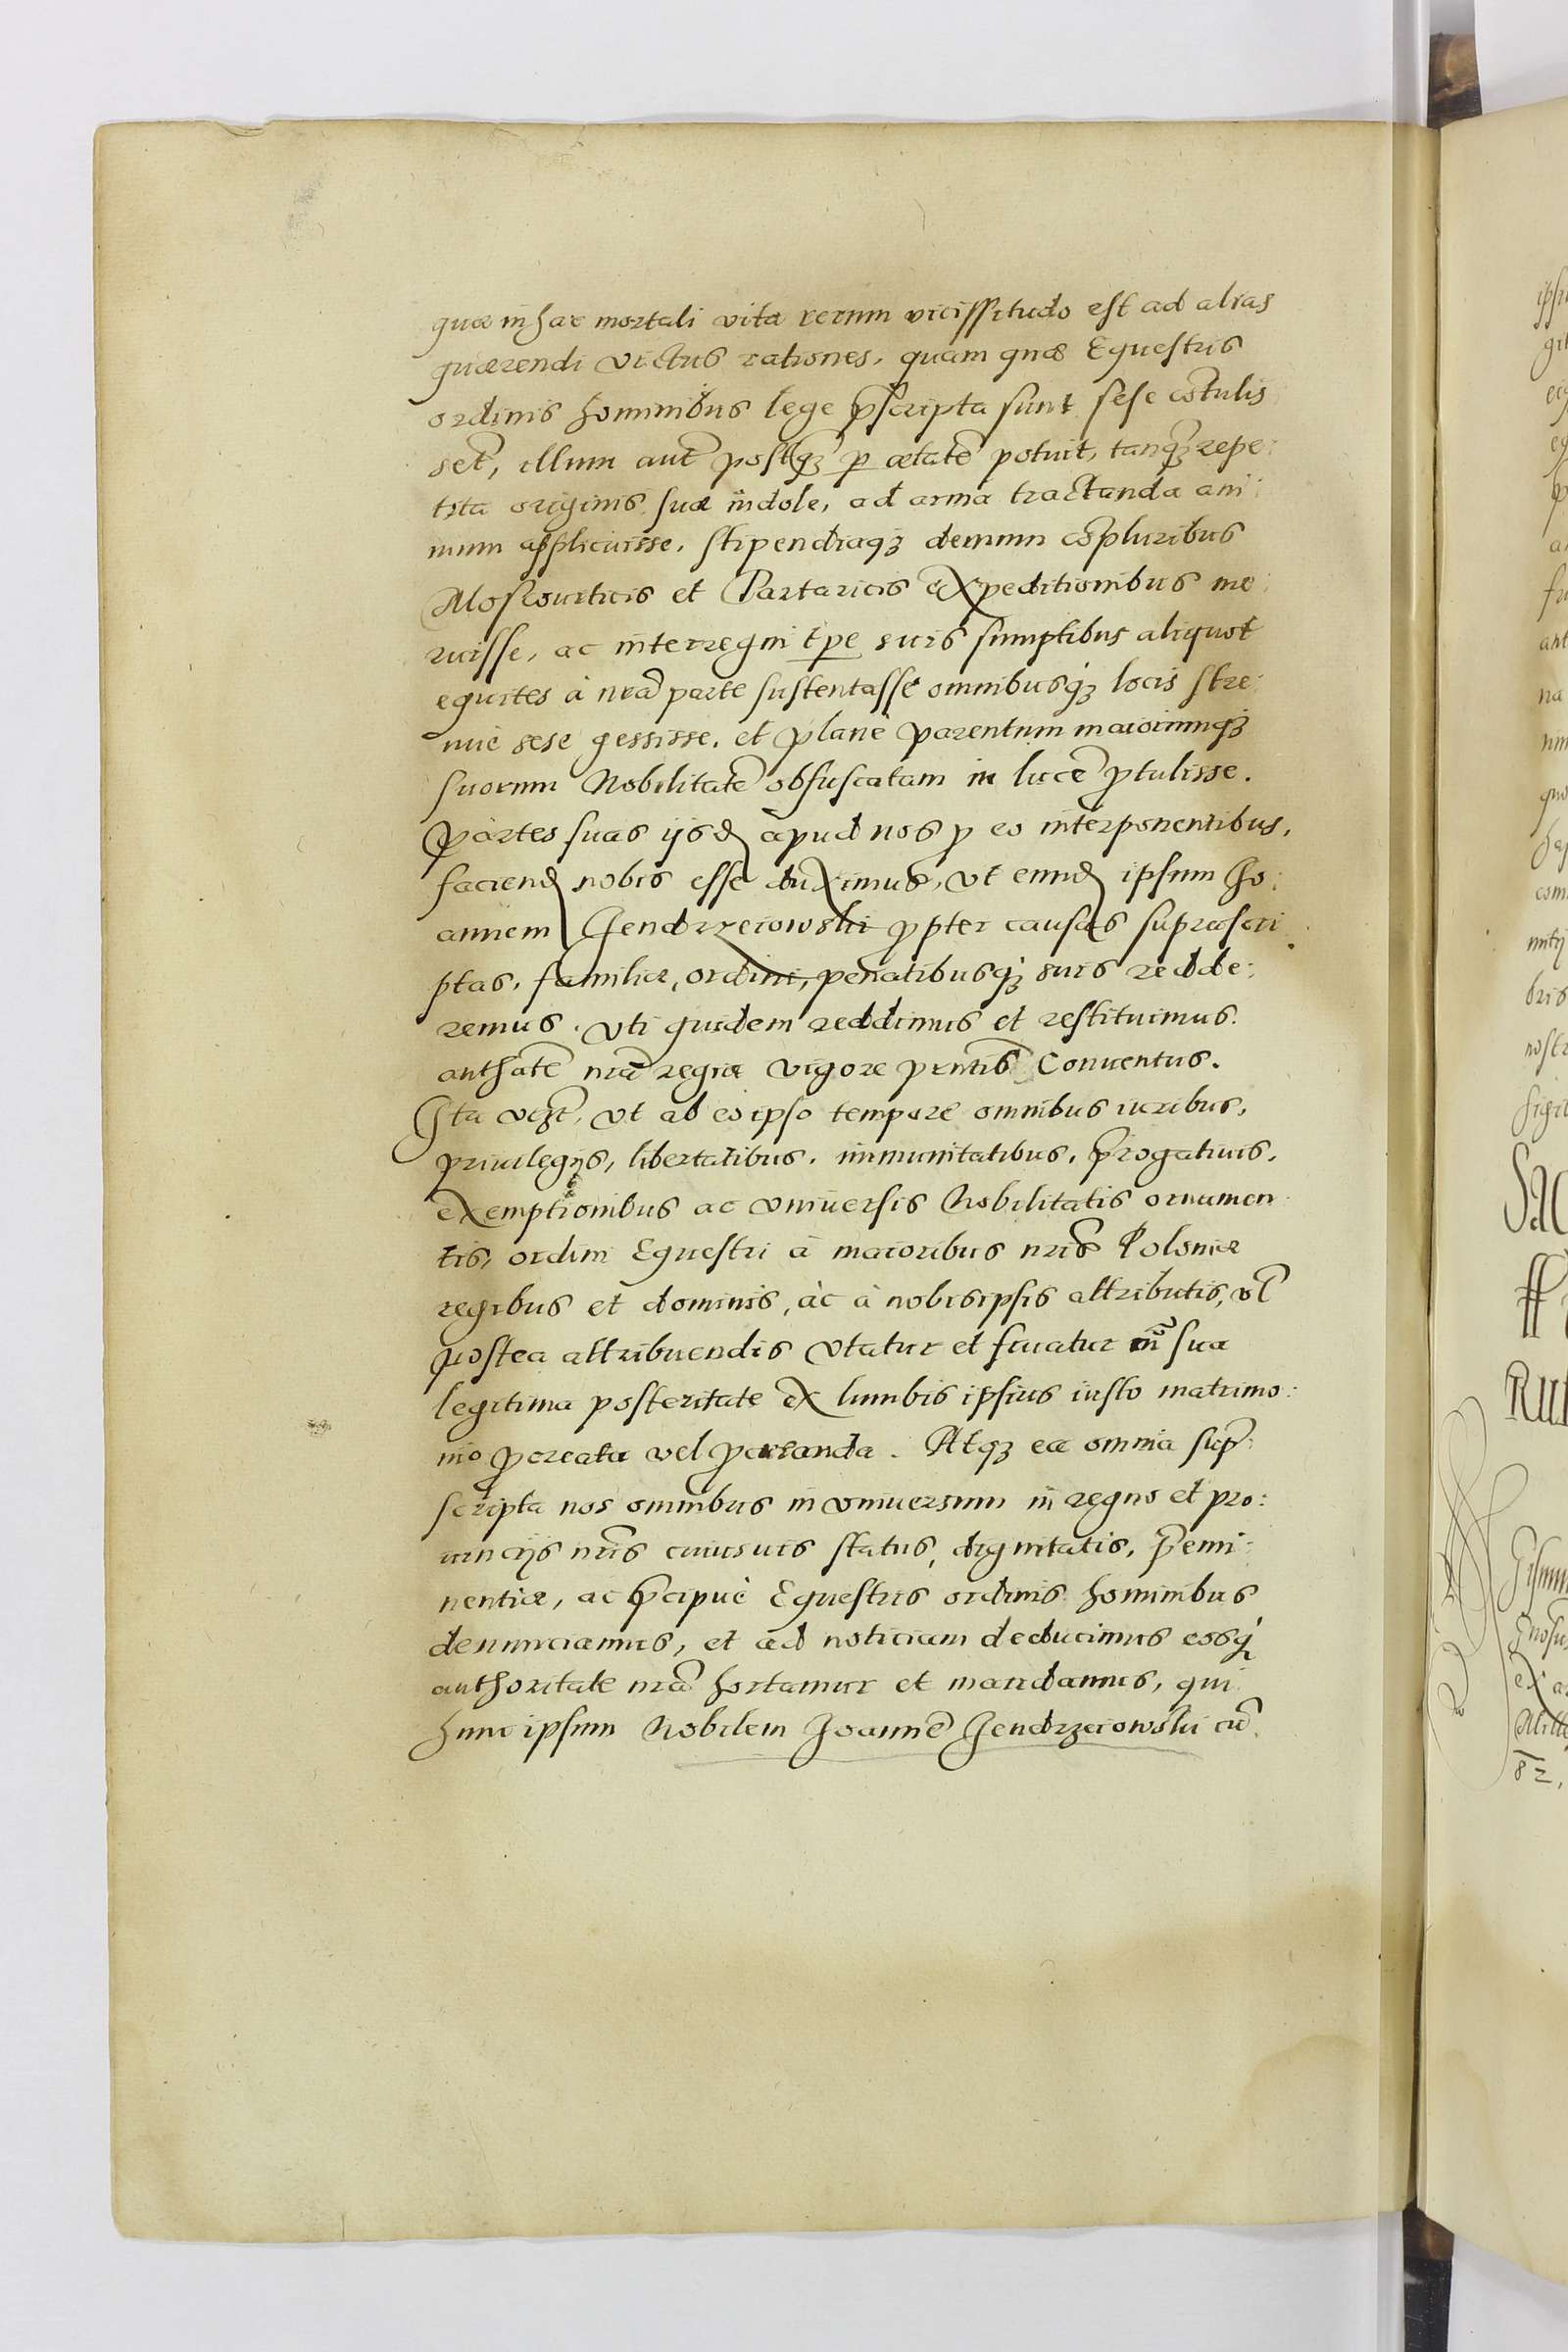 quæ in hac mortali vita rerum vicissitudo est ad alias
quærendi victus rationes, quam quæ Equestris
ordinis hominibus lege p̄scripta sunt sese cōtulis
set, illum aut̄ postq̄ꝫ ꝑ ætatē potuit, tanq̄ꝫ repe:
tita originis suæ indole, ad arma tractanda ani:
mum applicuisse, stipendiaqꝫ demum cōpluribus
Moscouiticis et Tartaricis expeditionibus me:
ruisse, ac interregni tp̄e suis sumptibus aliquot
equites à nrā parte sustentasse omnibusqꝫ locis stre:
nuè sese gessisse, et planè parentum maiorumqꝫ
suorum Nobilitatē obfuscatam in lucē ꝓtulisse.
Partes suas ijsd apud nos ꝓ eo interponentibus,
faciend nobis esse duximus, vt eund ipsum Jo:
annem Jendrzeiowski ꝓpter causas suprascri
ptas, familiæ, ordini, penatibusqꝫ suis redde:
remus. vti quidem reddimus et restituimus
authāte nrā regia vigore pn̄tis Conuentus.
Ita vt ab eo ipso tempore omnibus iuribus,
priuilegijs, libertatibus, immunitatibus, p̄rogatiuis,
exemptionibus ac vniuersis Nobilitatis ornamen
tis, ordini Equestri à maioribus nr̄is Poloniæ
regibus et dominis, ac à nobisipsis attributis, vl̄
postea attribuendis vtatur et fruatur cū sua
legitima posteritate ex lumbis ipsius iusto matrimo:
nio ꝓcreata vel ꝓcreanda. Atqꝫ ea omnia sup̄:
scripta nos omnibus in vniuersum in regno et pro:
uincijs nr̄is cuiusuis status, dignitatis, p̄emi:
nentiæ, ac p̄cipuè Equestris ordinis hominibus
denunciamus, et ad noticiam deducimus eosq́
authoritate nrā hortamur et mandamus, qui
hunc ipsum Nobilem Joannē Jendrzeiowski cū